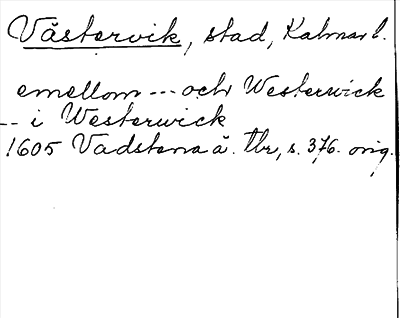 Västervik, stad, Kalmar l.
emellom --- och Westerwick
-- i Westerwick
1605 Vadstena ä. Tbr, s. 376. orig.